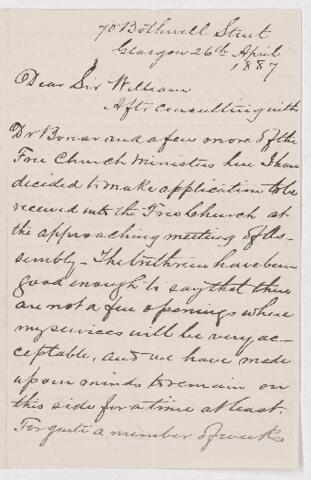 70 Bothwell Street
Glasgow 26th April
1887
Dear Sir William
After consulting with
Dr Bonar and a few more of the
Free Church Ministers here I have
decided to make application to be
received into the Free Church at
the approaching meeting of As-
sembly. The brethren have been
good enough to say that there
are not a few openings where
my services will be very ac-
ceptable, and we have made
up our minds to remain on
this side for a time at least.
For quite a number of weeks